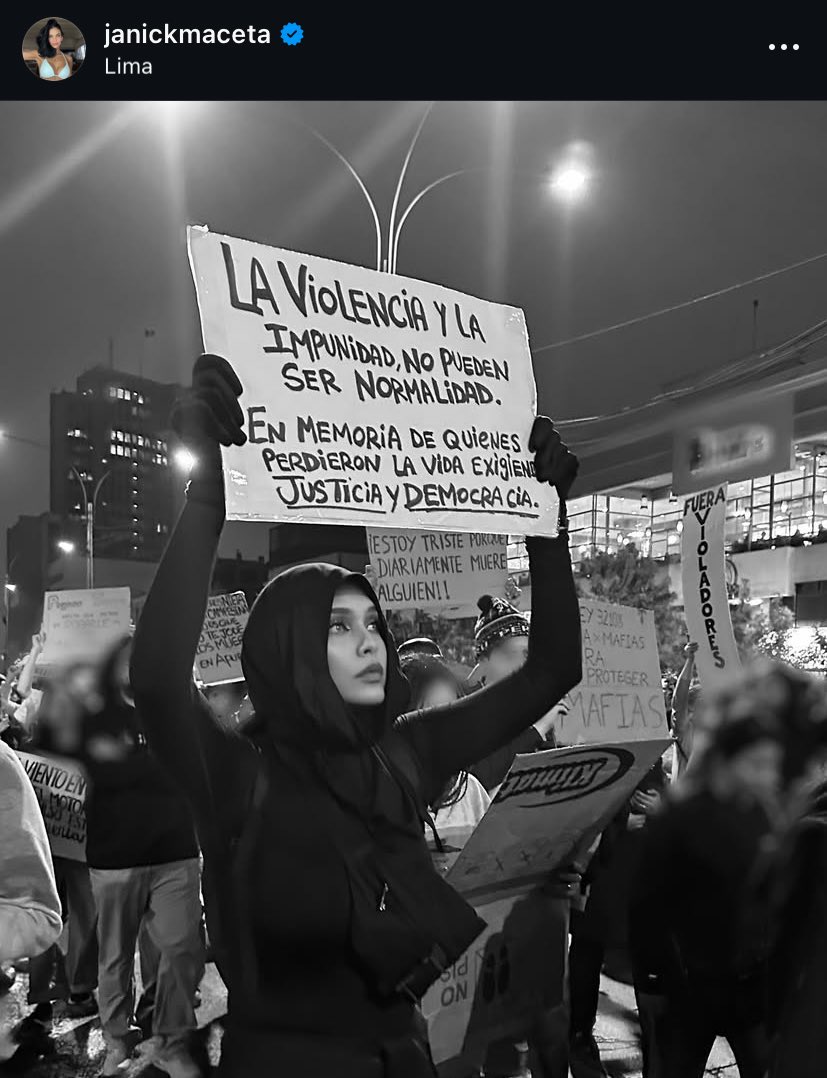 janickmaceta
Lima
LA VIOLENCIA Y LA
IMPUNIDAD, NO PUEDEN
SER NORMALIDAD.
EN MEMORIA DE QUIENES
PERDIERON LA VIDA EXIGIEND
JUSTICIA Y DEMOCRACIA.
¡ESTOY TRISTE PORQUE
DIARIAMENTE MUERE
ALGUIEN!!
FUERA
VIOLADORES
EY 32108
A × MAFIAS
RA
PROTEGER
MAFIAS
Klimax
VIENTO EN
MOTOR
NO